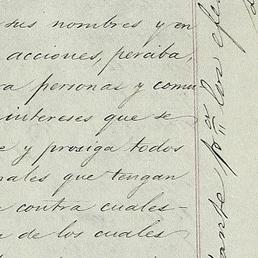 sus nombres y en
acciones, perciba,
personas y comu
intereses que se
y prosiga todos
rales que tengan
contra cuales-
de los cuales
los efe